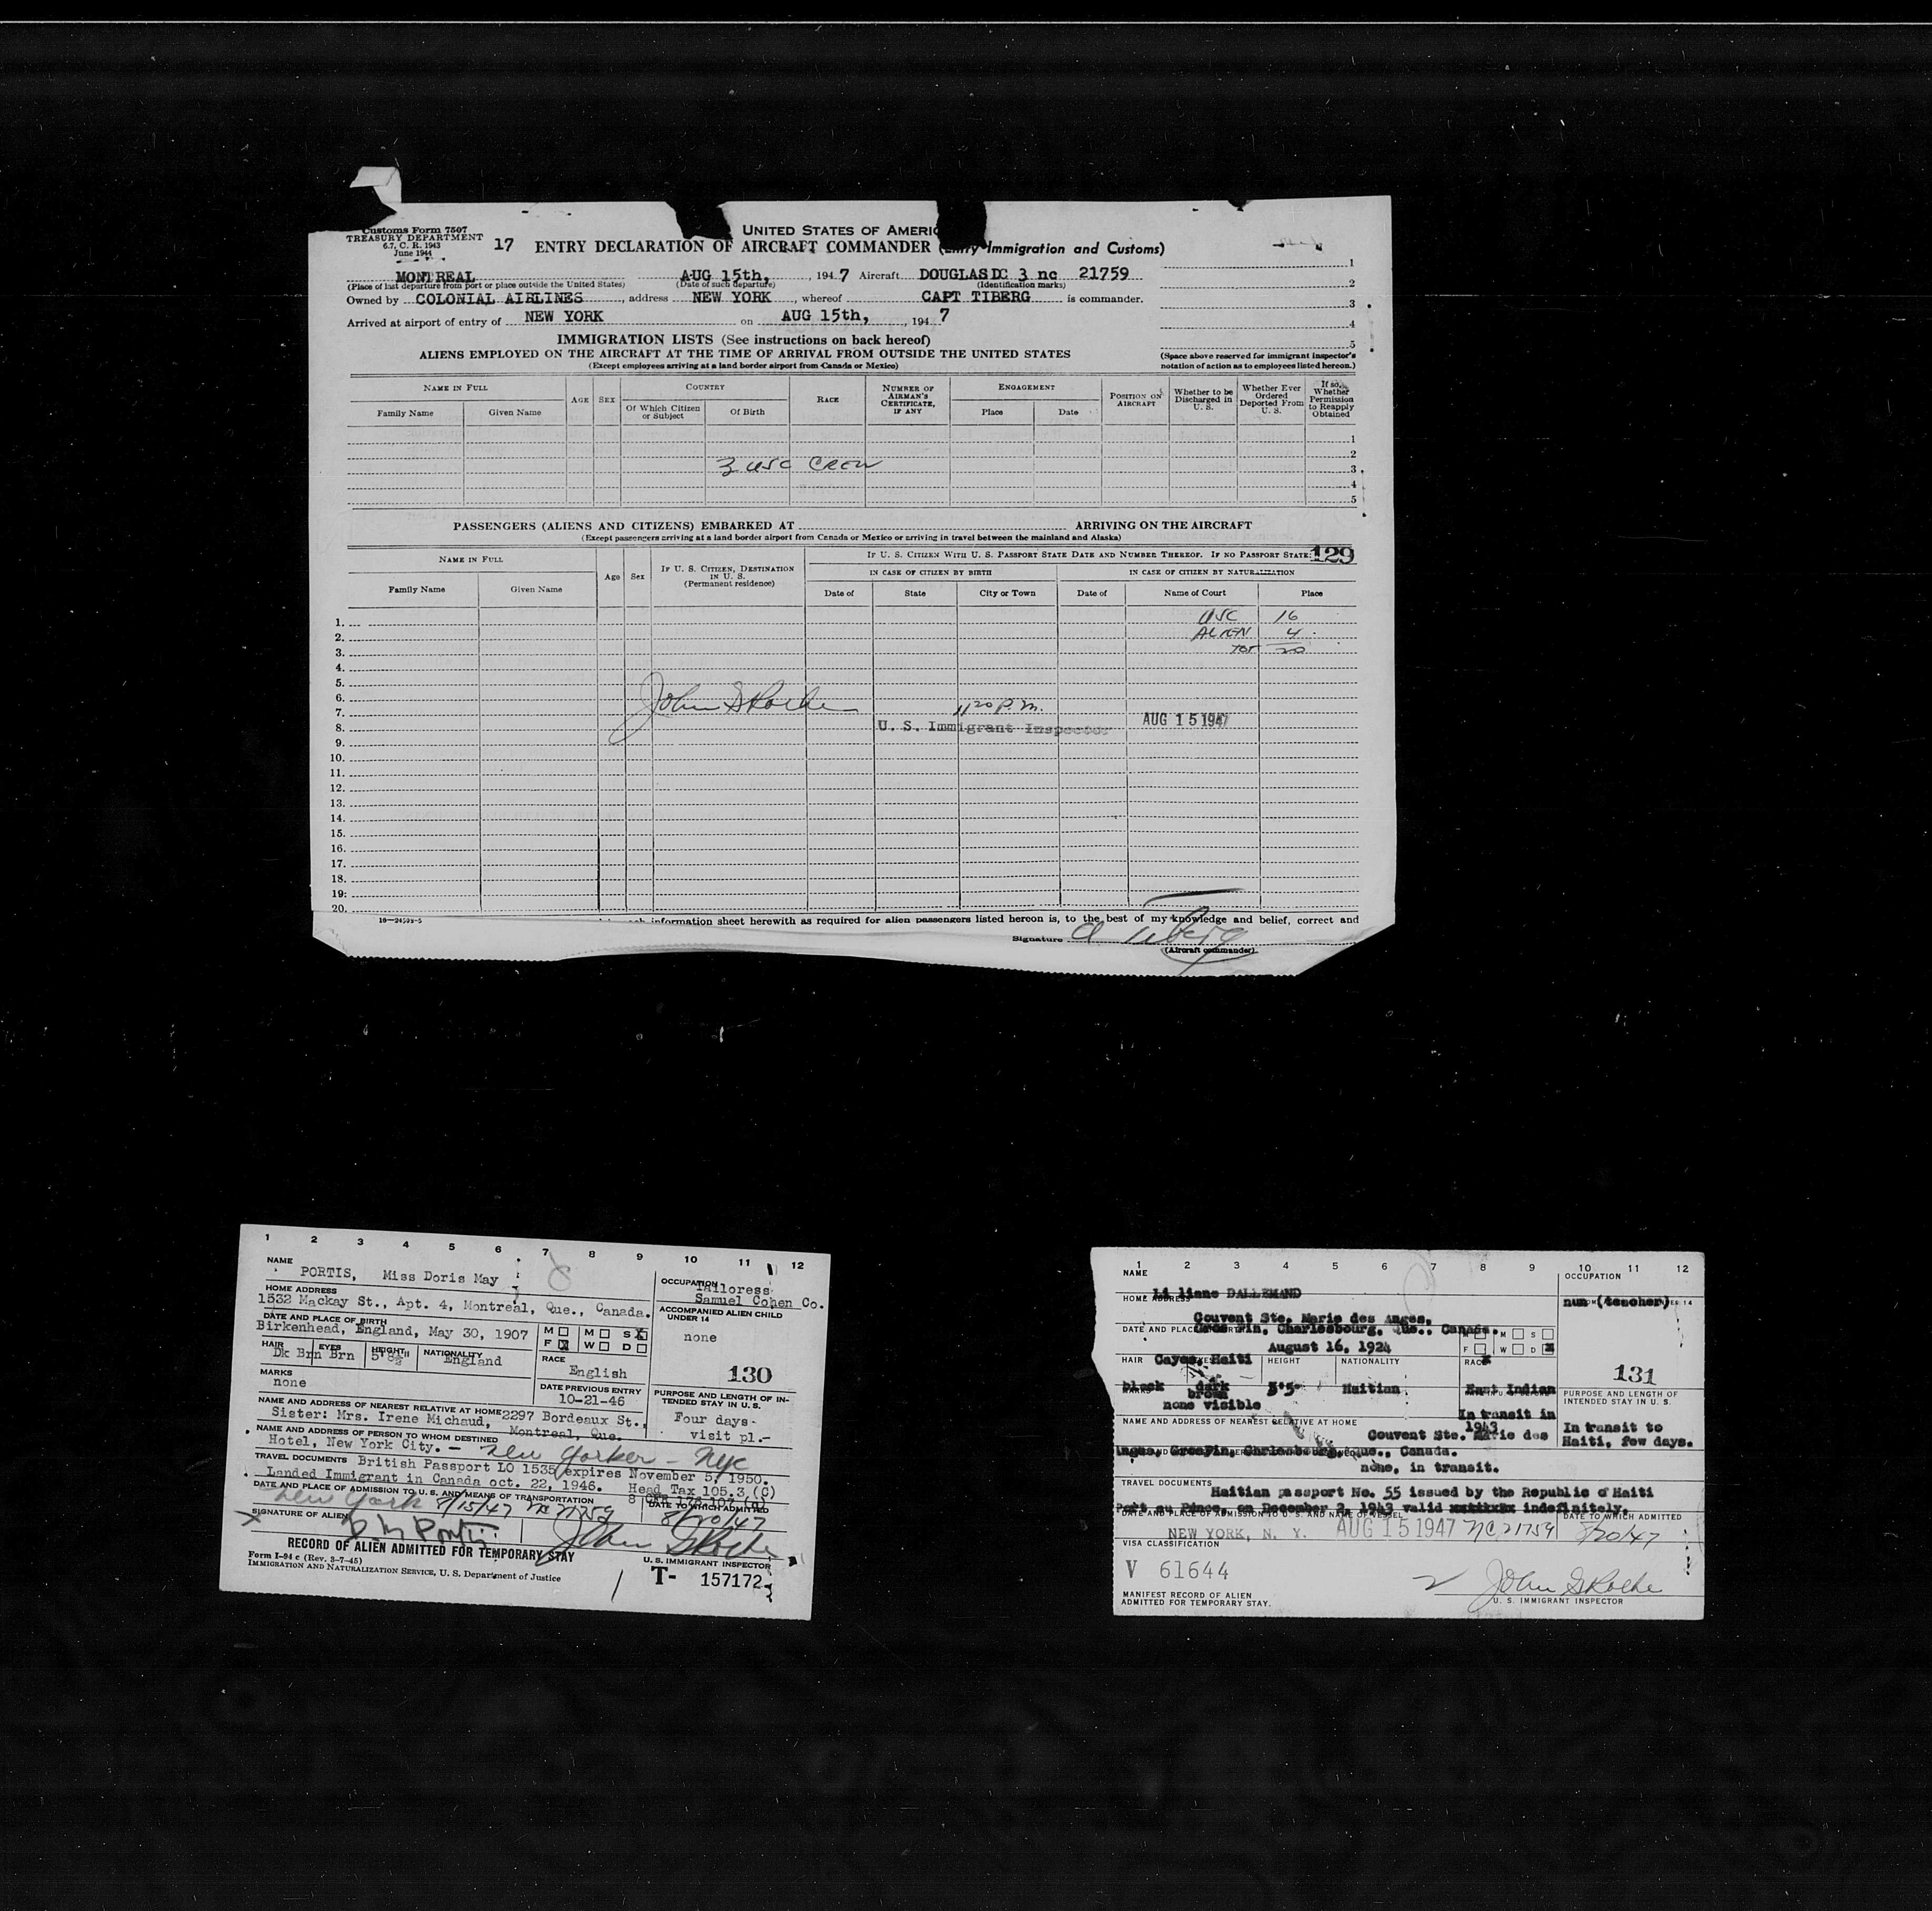 Customs Form 7507
TREASURY DEPARTMENT
6.7, C. R. 1943
June 1944
17
UNITED STATES OF AMERIC
ENTRY DECLARATION OF AIRCRAFT COMMANDER (Entry Immigration and Customs)
MONTREAL AUG 15th, , 194 7 Aircraft DOUGLAS DC 3 nc 21759
(Place of last departure from port or place outside the United States) (Date of such departure) (Identification marks)
Owned by COLONIAL AIRLINES , address NEW YORK , whereof CAPT TIBERG is commander.
Arrived at airport of entry of NEW YORK on AUG 15th, , 194 7
1
2
3
4
5
(Space above reserved for immigrant inspector's notation of action as to employees listed hereon.)
IMMIGRATION LISTS (See instructions on back hereof)
ALIENS EMPLOYED ON THE AIRCRAFT AT THE TIME OF ARRIVAL FROM OUTSIDE THE UNITED STATES
(Except employees arriving at a land border airport from Canada or Mexico)
NAME IN FULL
Family Name Given Name
AGE SEX
COUNTRY
Of Which Citizen or Subject Of Birth
RACE
NUMBER OF AIRMAN'S CERTIFICATE, IF ANY
ENGAGEMENT
Place Date
POSITION ON AIRCRAFT
Whether to be Discharged in U. S.
Whether Ever Ordered Deported From U. S.
If so, Whether Permission to Reapply Obtained
1
2
3 USC CREW 3
4
5
PASSENGERS (ALIENS AND CITIZENS) EMBARKED AT ARRIVING ON THE AIRCRAFT
(Except passengers arriving at a land border airport from Canada or Mexico or arriving in travel between the mainland and Alaska)
NAME IN FULL
Family Name Given Name
Age Sex
IF U. S. CITIZEN, DESTINATION IN U. S. (Permanent residence)
IF U. S. CITIZEN WITH U. S. PASSPORT STATE DATE AND NUMBER THEREOF. IF NO PASSPORT STATE: 129
IN CASE OF CITIZEN BY BIRTH IN CASE OF CITIZEN BY NATURALIZATION
Date of State City or Town Date of Name of Court Place
1. USC 16
2. ALIEN 4
3. TOT 20
4.
5.
6. John S Roche
7. 11 20 P.m.
8. U. S. Immigrant Inspector AUG 15 1947
9.
10.
11.
12.
13.
14.
15.
16.
17.
18.
19.
20.
16—24598-5
information sheet herewith as required for alien passengers listed hereon is, to the best of my knowledge and belief, correct and
Signature
(Aircraft commander)
1 2 3 4 5 6 7 8 9 10 11 12
NAME
PORTIS, Miss Doris May
OCCUPATION
Tailoress
Samuel Cohen Co.
HOME ADDRESS
1532 Mackay St., Apt. 4, Montreal, Que., Canada.
ACCOMPANIED ALIEN CHILD UNDER 14
none
DATE AND PLACE OF BIRTH
Birkenhead, England, May 30, 1907
M M S X
F X W D
HAIR EYES HEIGHT NATIONALITY
Dk Brn Brn 5' 8½" England
RACE
English
130
MARKS
none
DATE PREVIOUS ENTRY
10-21-46
PURPOSE AND LENGTH OF INTENDED STAY IN U. S.
Four days-
visit pl.-
NAME AND ADDRESS OF NEAREST RELATIVE AT HOME
Sister: Mrs. Irene Michaud, 2297 Bordeaux St., Montreal, Que.
NAME AND ADDRESS OF PERSON TO WHOM DESTINED
Hotel, New York City. — New Yorker - NYC
TRAVEL DOCUMENTS British Passport LO 1535 expires November 5, 1950.
Landed Immigrant in Canada oct. 22, 1946. Head Tax 105.3 (C)
DATE AND PLACE OF ADMISSION TO U. S. AND MEANS OF TRANSPORTATION
DATE TO WHICH ADMITTED
New York 8/15/47 NC 21759 8/20/47
SIGNATURE OF ALIEN
X D M Portis John S Roche
RECORD OF ALIEN ADMITTED FOR TEMPORARY STAY
U. S. IMMIGRANT INSPECTOR
Form I-94 c (Rev. 3-7-45)
IMMIGRATION AND NATURALIZATION SERVICE, U. S. Department of Justice
T- 157172
1 2 3 4 5 6 7 8 9 10 11 12
NAME
OCCUPATION
Liliane DALLEMAND
nun (teacher)
HOME ADDRESS
Couvent Ste. Marie des Anges,
DATE AND PLACE OF BIRTH
Charlesbourg, Que., Canada.
August 16, 1924
M M S
F W D
HAIR Cayes, Haiti HEIGHT NATIONALITY RACE
131
black dark brown 5'5" Haitian East Indian
MARKS
none visible
PURPOSE AND LENGTH OF INTENDED STAY IN U. S.
In transit in 1943
In transit to Haiti, few days.
NAME AND ADDRESS OF NEAREST RELATIVE AT HOME
Couvent Ste. Marie des
Que., Canada.
none, in transit.
TRAVEL DOCUMENTS
Haitian passport No. 55 issued by the Republic of Haiti
Port au Pince, on December 2, 1943 valid indefinitely.
DATE AND PLACE OF ADMISSION TO U. S. AND NAME OF VESSEL DATE TO WHICH ADMITTED
NEW YORK, N. Y. AUG 15 1947 NC 21759 8/20/47
VISA CLASSIFICATION
V 61644
John S Roche
MANIFEST RECORD OF ALIEN
ADMITTED FOR TEMPORARY STAY.
U. S. IMMIGRANT INSPECTOR